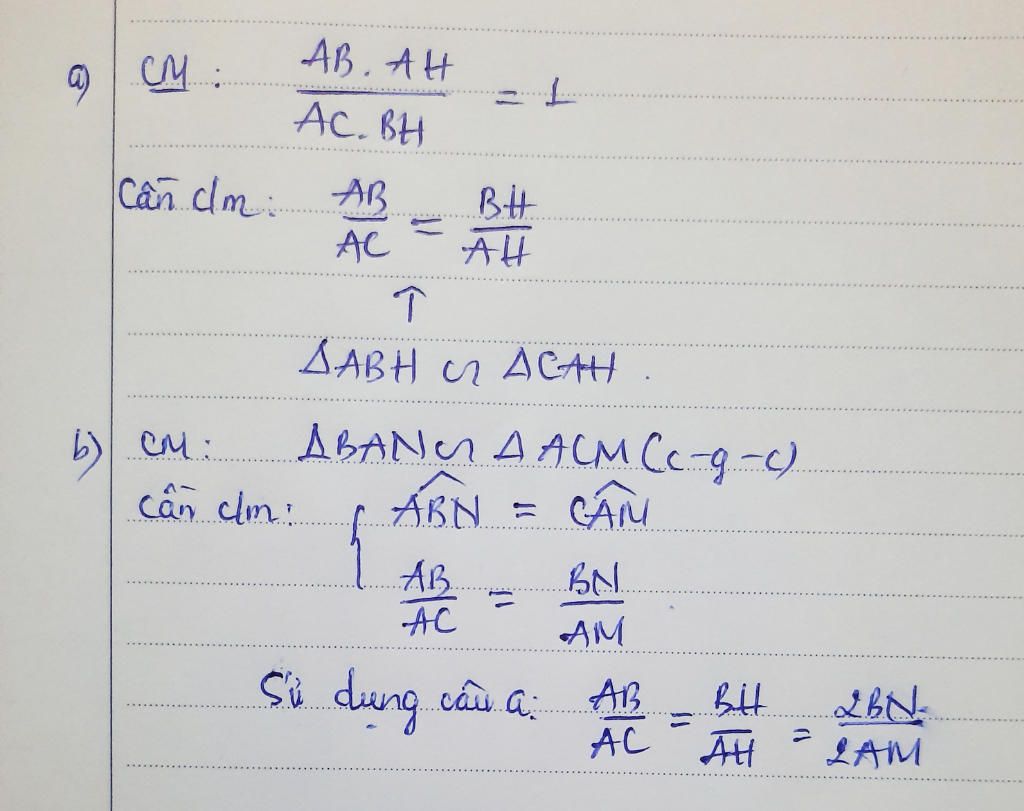 a) CM : AB. AH / AC. BH = 1
Cần c/m: AB / AC = BH / AH
↑
ΔABH ∽ ΔCAH .
b) CM : ΔBAN ∽ ΔACM (c-g-c)
Cần c/m: { ABN̂ = CAM̂
AB / AC = BN / AM
Sử dụng câu a: AB / AC = BH / AH = 2BN / 2AM